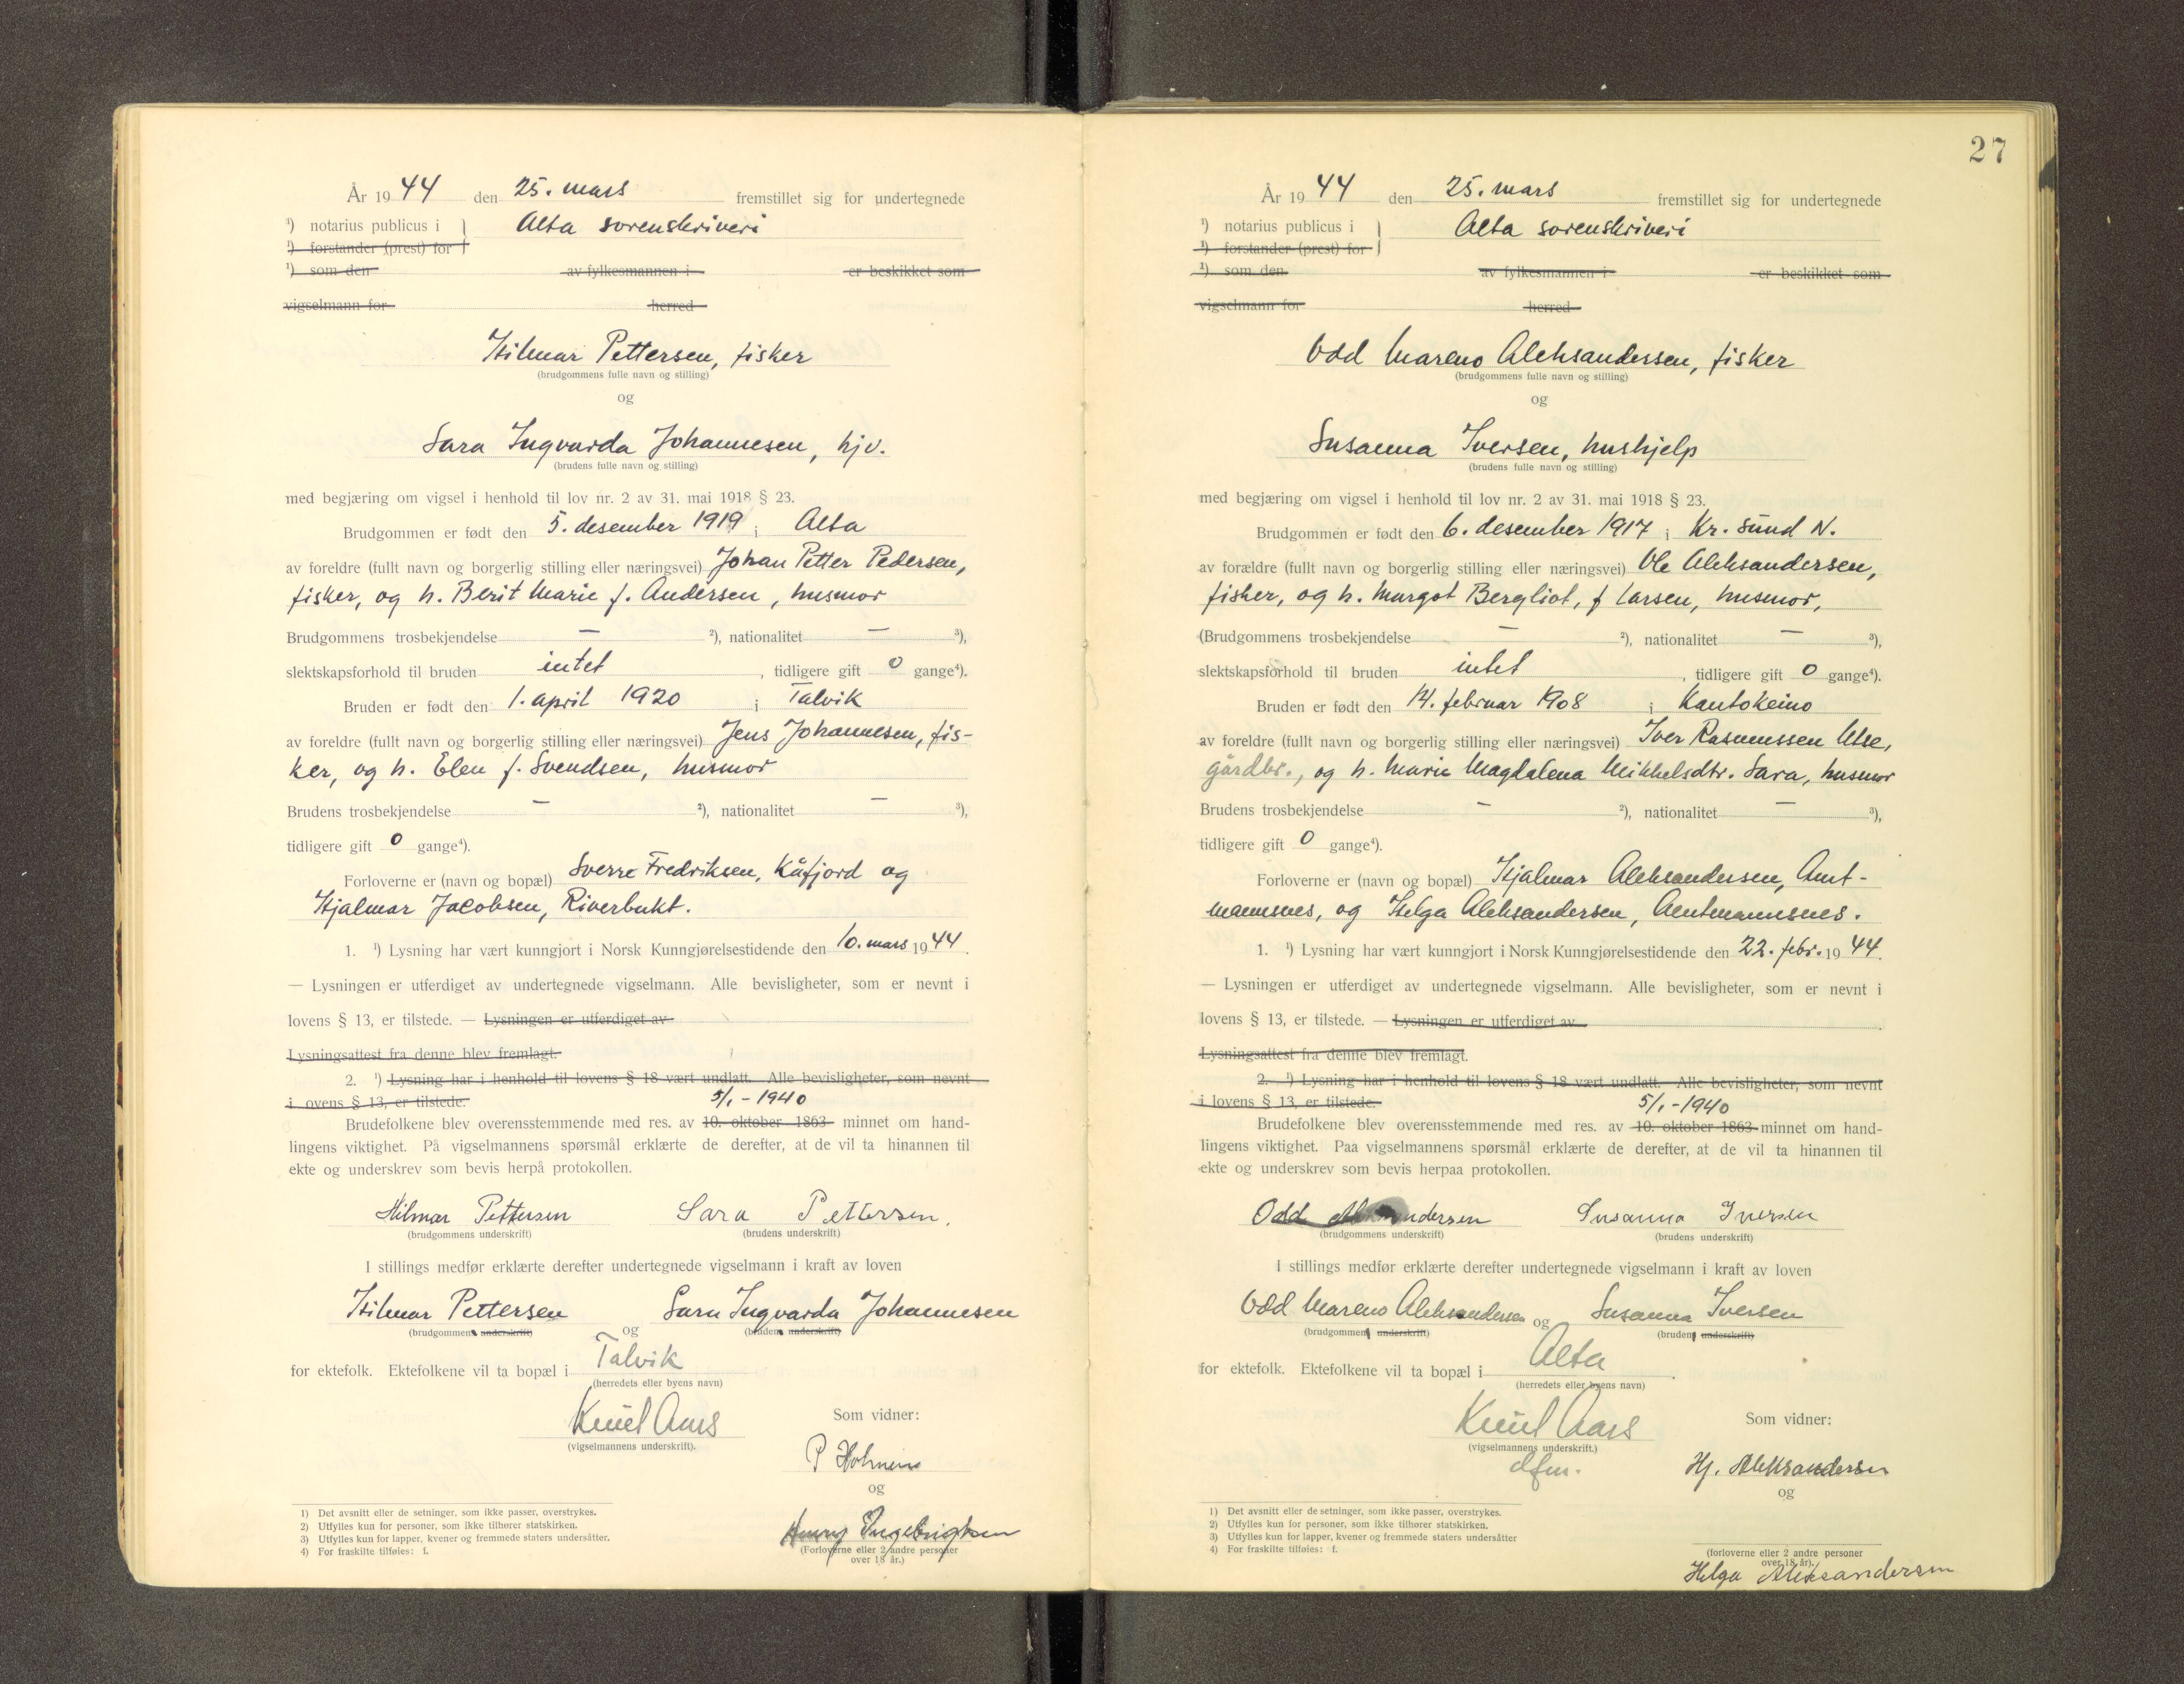 År 1944 den 25. mars fremstillet sig for undertegnede
¹) notarius publicus i } Alta sorenskriveri
¹) forstander (prest) for
¹) som den av fylkesmannen i er beskikket som
vigselmann for herred
Hilmar Pettersen, fisker
(brudgommens fulle navn og stilling)
og
Sara Ingvarda Johannesen, hjv.
(brudens fulle navn og stilling)
med begjæring om vigsel i henhold til lov nr. 2 av 31. mai 1918 § 23.
Brudgommen er født den 5. desember 1919 i Alta
av foreldre (fullt navn og borgerlig stilling eller næringsvei) Johan Petter Pedersen,
fisker, og h. Berit Marie f. Andersen, husmor
Brudgommens trosbekjendelse — ²), nationalitet — ³),
slektskapsforhold til bruden intet, tidligere gift 0 gange⁴).
Bruden er født den 1. april 1920 i Talvik
av foreldre (fullt navn og borgerlig stilling eller næringsvei) Jens Johannesen, fis-
ker, og h. Elen f. Svendsen, husmor
Brudens trosbekjendelse — ²), nationalitet — ³),
tidligere gift 0 gange⁴).
Forloverne er (navn og bopæl) Sverre Fredriksen, Kåfjord og
Hjalmar Jacobsen, Riverbukt.
1. ¹) Lysning har vært kunngjort i Norsk Kunngjørelsestidende den 10. mars 1944.
— Lysningen er utferdiget av undertegnede vigselmann. Alle bevisligheter, som er nevnt i
lovens § 13, er tilstede. — Lysningen er utferdiget av
Lysningsattest fra denne blev fremlagt.
2. ¹) Lysning har i henhold til lovens § 18 vært undlatt. Alle bevisligheter, som nevnt
i ovens § 13, er tilstede. 5/1 - 1940
Brudefolkene blev overensstemmende med res. av 10. oktober 1863 minnet om hand-
lingens viktighet. På vigselmannens spørsmål erklærte de derefter, at de vil ta hinannen til
ekte og underskrev som bevis herpå protokollen.
Hilmar Pettersen Sara Pettersen.
(brudgommens underskrift) (brudens underskrift)
I stillings medfør erklærte derefter undertegnede vigselmann i kraft av loven
Hilmar Pettersen og Sara Ingvarda Johannesen
(brudgommens underskrift) (brudens underskrift)
for ektefolk. Ektefolkene vil ta bopæl i Talvik
(herredets eller byens navn)
Knut Aars
(vigselmannens underskrift).
Som vidner:
P Holmen
og
Henry Ingebrigtsen
(Forloverne eller 2 andre personer
over 18 år.)
1) Det avsnitt eller de setninger, som ikke passer, overstrykes.
2) Utfylles kun for personer, som ikke tilhører statskirken.
3) Utfylles kun for lapper, kvener og fremmede staters undersåtter.
4) For fraskilte tilføies: f.
27
År 1944 den 25. mars fremstillet sig for undertegnede
¹) notarius publicus i } Alta sorenskriveri
¹) forstander (prest) for
¹) som den av fylkesmannen i er beskikket som
vigselmann for herred
Odd Mareno Aleksandersen, fisker
(brudgommens fulle navn og stilling)
og
Susanna Iversen, hushjelp
(brudens fulle navn og stilling)
med begjæring om vigsel i henhold til lov nr. 2 av 31. mai 1918 § 23.
Brudgommen er født den 6. desember 1917 i Kr.sund N.
av forældre (fullt navn og borgerlig stilling eller næringsvei) Ole Aleksandersen,
fisker, og h. Margot Bergliot, f Larsen, husmor,
(Brudgommens trosbekjendelse — ²), nationalitet — ³),
slektskapsforhold til bruden intet, tidligere gift 0 gange⁴).
Bruden er født den 14. februar 1908 i Kautokeino
av foreldre (fullt navn og borgerlig stilling eller næringsvei) Iver Rasmussen Utse,
gårdbr., og h. Marie Magdalena Mikkelsdtr. Sara, husmor
Brudens trosbekjendelse — ²), nationalitet — ³),
tidligere gift 0 gange⁴).
Forloverne er (navn og bopæl) Hjalmar Aleksandersen, Amt-
mannsnes, og Helga Aleksandersen, Amtmannsnes.
1. ¹) Lysning har vært kunngjort i Norsk Kunngjørelsestidende den 22. febr. 1944.
— Lysningen er utferdiget av undertegnede vigselmann. Alle bevisligheter, som er nevnt i
lovens § 13, er tilstede. — Lysningen er utferdiget av
Lysningsattest fra denne blev fremlagt.
2. ¹) Lysning har i henhold til lovens § 18 vært undlatt. Alle bevisligheter, som nevnt
i lovens § 13, er tilstede. 5/1 - 1940
Brudefolkene blev overensstemmende med res. av 10. oktober 1863 minnet om hand-
lingens viktighet. Paa vigselmannens spørsmål erklærte de derefter, at de vil ta hinannen til
ekte og underskrev som bevis herpaa protokollen.
Odd Aleksandersen Susanna Iversen
(brudgommens underskrift) (brudens underskrift)
I stillings medfør erklærte derefter undertegnede vigselmann i kraft av loven
Odd Mareno Aleksandersen og Susanna Iversen
(brudgommens underskrift) (brudens underskrift)
for ektefolk. Ektefolkene vil ta bopæl i Alta.
(herredets eller byens navn)
Knut Aars
(vigselmannens underskrift.)
dfm.
Som vidner:
Hj. Aleksandersen
og
(forloverne eller 2 andre personer
over 18 år).
Helga Aleksandersen
1) Det avsnitt eller de setninger, som ikke passer, overstrykes.
2) Utfylles kun for personer, som ikke tilhører statskirken.
3) Utfylles kun for lapper, kvener og fremmede staters undersåtter
4) For fraskilte tilføies: f.